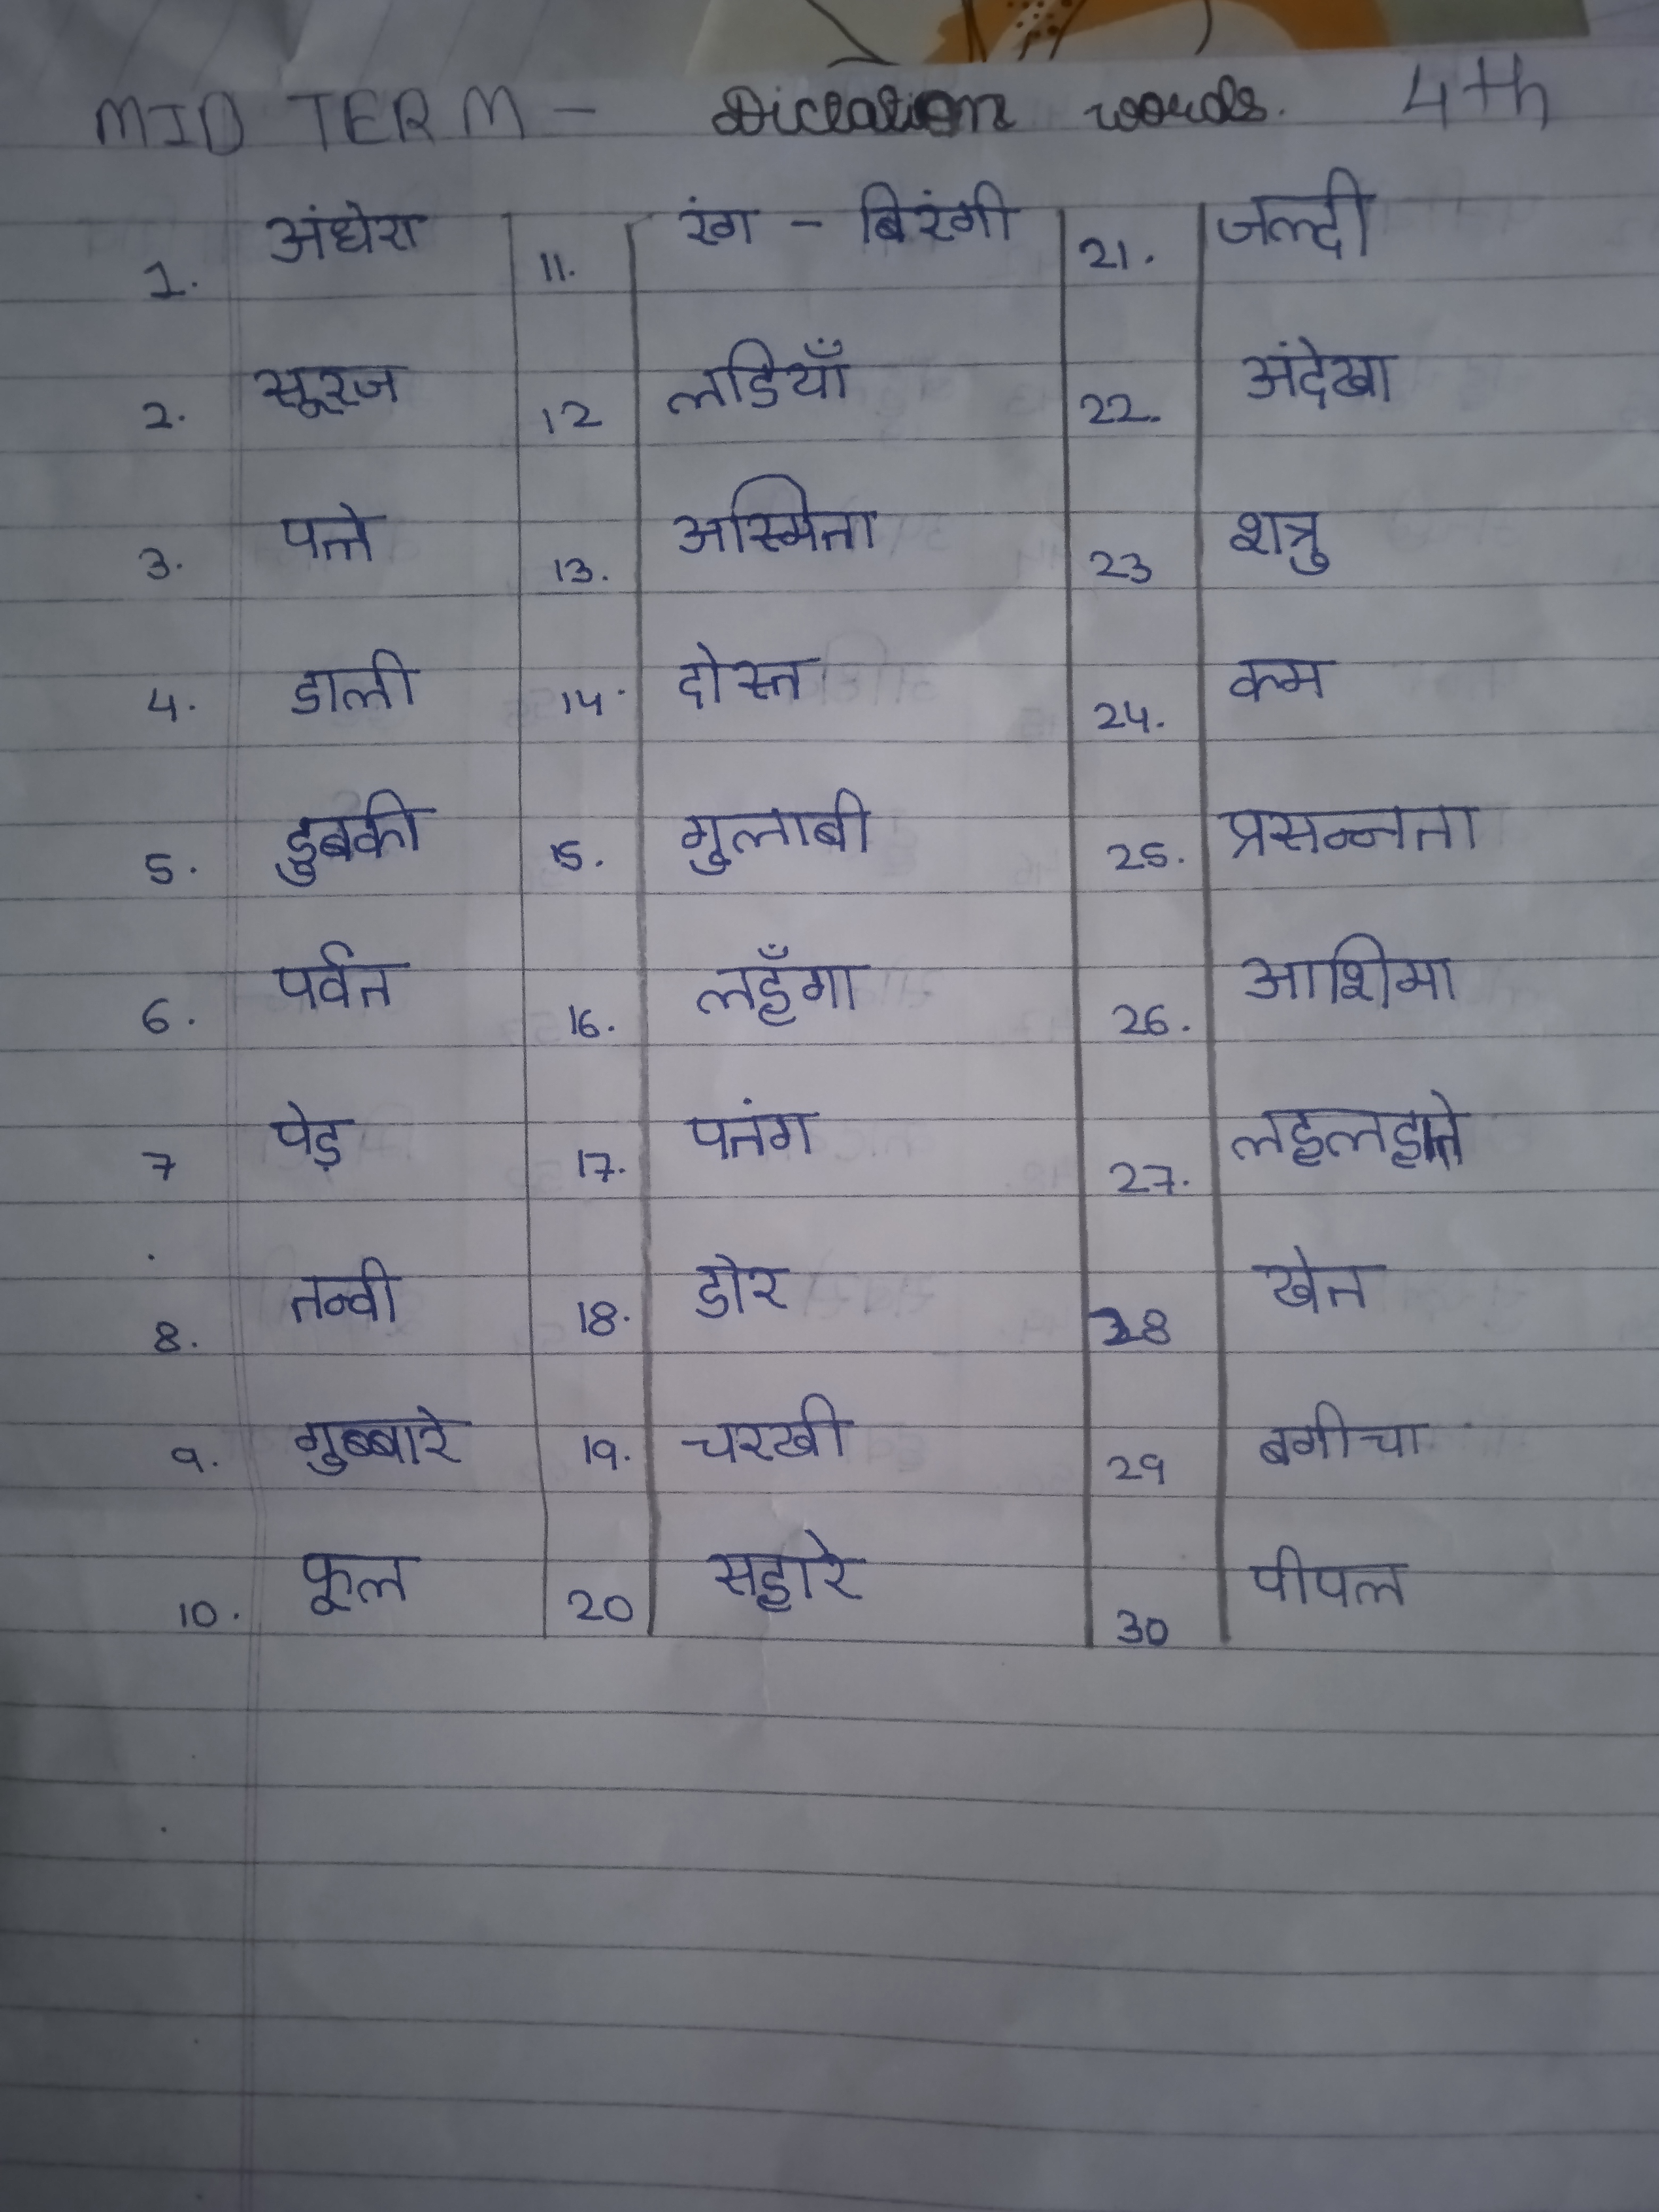 MID TERM - Dictation words. 4th
1. अंधेरा 11. रंग - बिरंगी 21. जल्दी
2. सूरज 12 लडियाँ 22. अंदेखा
3. पत्ते 13. अस्मिता 23 शत्रु
4. डाली 14. दोस्त 24. कम
5. डुबकी 15. गुलाबी 25. प्रसन्नता
6. पर्वत 16. लहँगा 26. आशिमा
7 पेड़ 17. पतंग 27. लहलहाते
8. तन्वी 18. डोर 28 खेत
9. गुब्बारे 19. चरखी 29 बगीचा
10. फूल 20 सहारे 30 पीपल